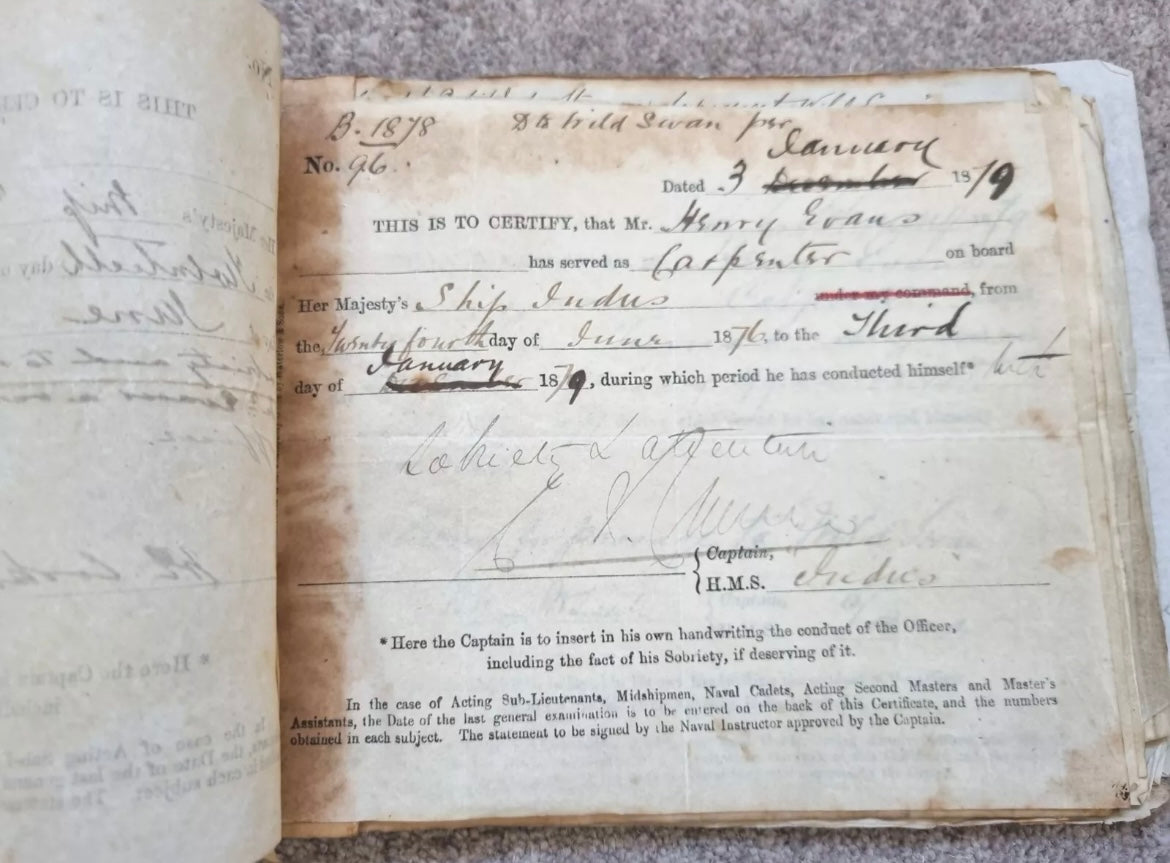 B. 1878 Wild Swan per
No. 96.
January
Dated 3 December 1879
THIS IS TO CERTIFY, that Mr. Henry Evans
has served as Carpenter on board
Her Majesty's Ship Indus under my command, from
the Twenty fourth day of June 1876, to the Third
January
day of December 1879, during which period he has conducted himself* with
Sobriety & attention
Captain,
H.M.S. Indus
* Here the Captain is to insert in his own handwriting the conduct of the Officer,
including the fact of his Sobriety, if deserving of it.
In the case of Acting Sub-Lieutenants, Midshipmen, Naval Cadets, Acting Second Masters and Master's
Assistants, the Date of the last general examination is to be entered on the back of this Certificate, and the numbers
obtained in each subject. The statement to be signed by the Naval Instructor approved by the Captain.